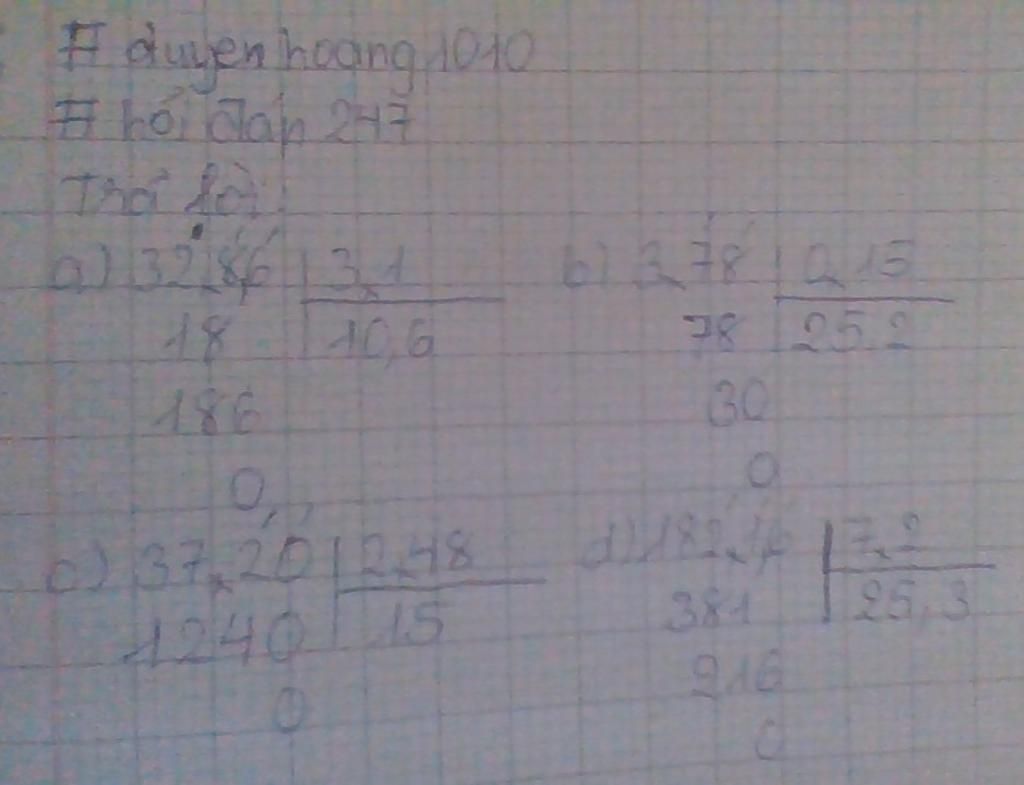 # duyenhoang1010
# hỏi đáp 247
Trả lời:
a) 32,8,6 | 3,1
18 | 10,6
186
0
b) 3,78 | 0,15
78 | 25,2
30
0
c) 37,20 | 2,48
1240 | 15
0
d) 182,1,6 | 7,2
381 | 25,3
216
0